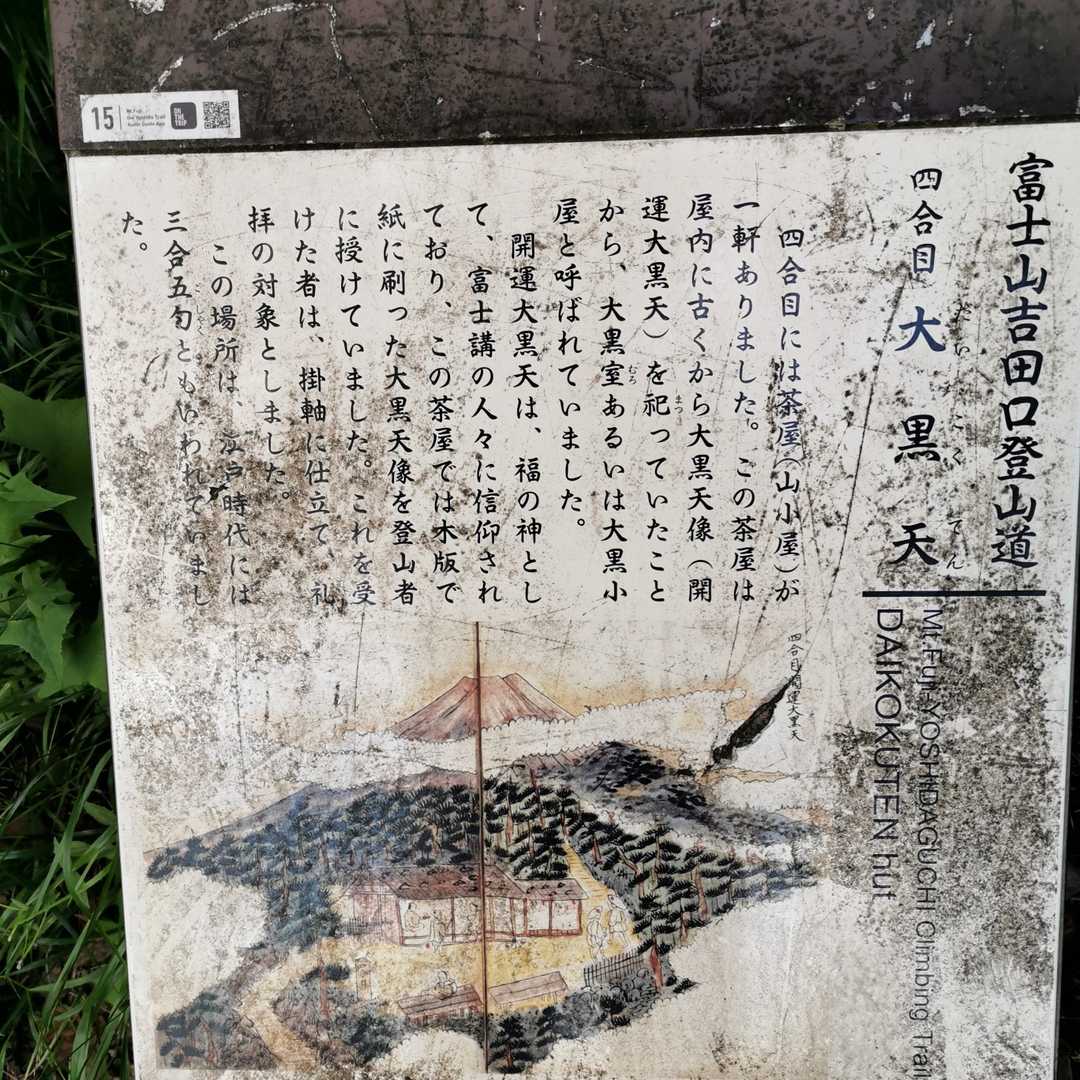 15
Mt.Fuji
the Yoshida Trail
Audio Guide App
ON
THE
TRIP
富士山吉田口登山道
四合目 大黒天
だいこくてん
Mt.Fuji-YOSHIDAGUCHI Climbing Trail
DAIKOKUTEN hut
四合目には茶屋(山小屋)が
一軒ありました。この茶屋は
屋内に古くから大黒天像(開
運大黒天)を祀っていたこと
まつ
から、大黒室あるいは大黒小
むろ
屋と呼ばれていました。
開運大黒天は、福の神とし
て、富士講の人々に信仰され
ており、この茶屋では木版で
紙に刷った大黒天像を登山者
に授けていました。これを受
けた者は、掛軸に仕立て、礼
拝の対象としました。
この場所は、江戸時代には
三合五勺ともいわれていまし
ごしゃく
た。
四合目開運大黒天